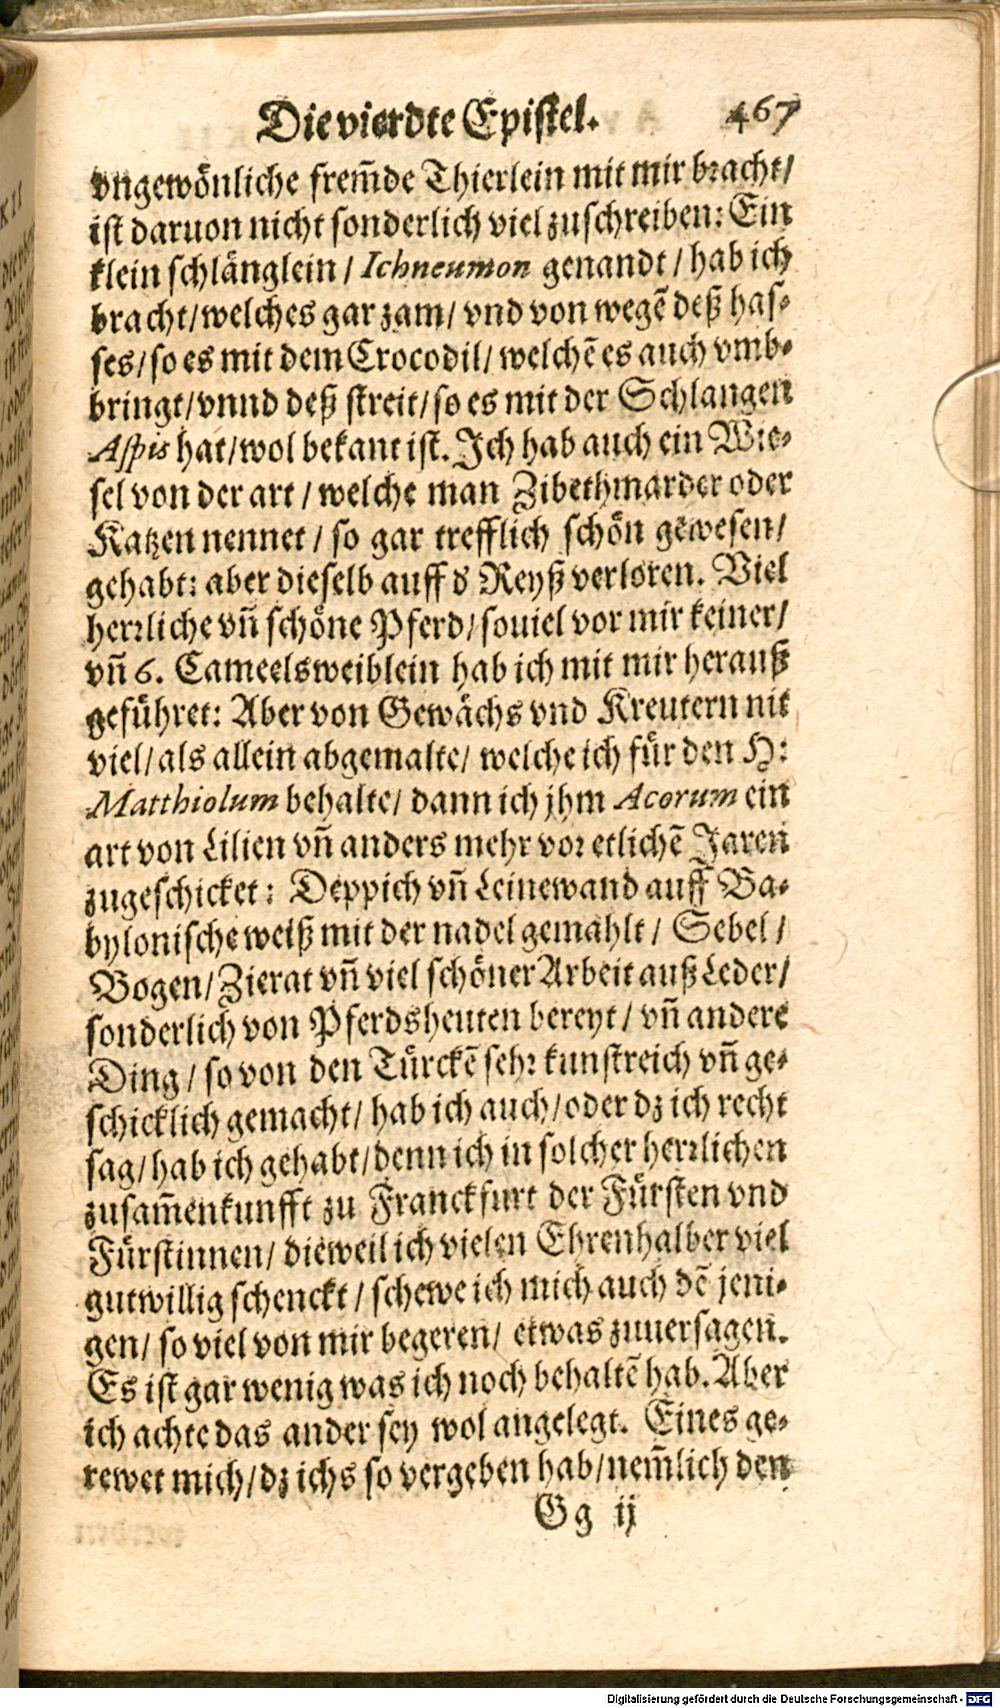 Die vierdte Epistel. 467
vngewönliche frem̃de Thierlein mit mir bracht/
ist daruon nicht sonderlich viel zuschreiben: Ein
klein schlänglein / Ichneumon genandt / hab ich
bracht/welches gar zam/ vnd von wegẽ deß has-
ses/ so es mit dem Crocodil/ welchẽ es auch vmb-
bringt/vnnd deß streit/so es mit der Schlangen
Aspis hat/wol bekant ist. Ich hab auch ein Wie-
sel von der art / welche man Zibethmarder oder
Katzen nennet / so gar trefflich schön gewesen/
gehabt: aber dieselb auff d' Reyß verloren. Viel
herrliche vñ schöne Pferd/ souiel vor mir keiner/
vñ 6. Cameelsweiblein hab ich mit mir herauß
geführet: Aber von Gewächs vnd Kreutern nit
viel/ als allein abgemalte/ welche ich für den H:
Matthiolum behalte/ dann ich jhm Acorum ein
art von Lilien vñ anders mehr vor etlichẽ Jaren
zugeschicket: Deppich vñ Leinewand auff Ba-
bylonische weiß mit der nadel gemahlt / Sebel /
Bogen/ Zierat vñ viel schöner Arbeit auß Leder/
sonderlich von Pferdsheuten bereyt/ vñ andere
Ding / so von den Türckẽ sehr kunstreich vñ ge-
schicklich gemacht/ hab ich auch/oder dz ich recht
sag/ hab ich gehabt/denn ich in solcher herrlichen
zusam̃enkunfft zu Franckfurt der Fürsten vnd
Fürstinnen/ dieweil ich vielen Ehrenhalber viel
gutwillig schenckt / schewe ich mich auch dẽ jeni-
gen/ so viel von mir begeren/ etwas zuuersagen.
Es ist gar wenig was ich noch behaltẽ hab. Aber
ich achte das ander sey wol angelegt. Eines ge-
rewet mich/ dz ichs so vergeben hab/nem̃lich den
Gg ij
Digitalisierung gefördert durch die Deutsche Forschungsgemeinschaft - DFG